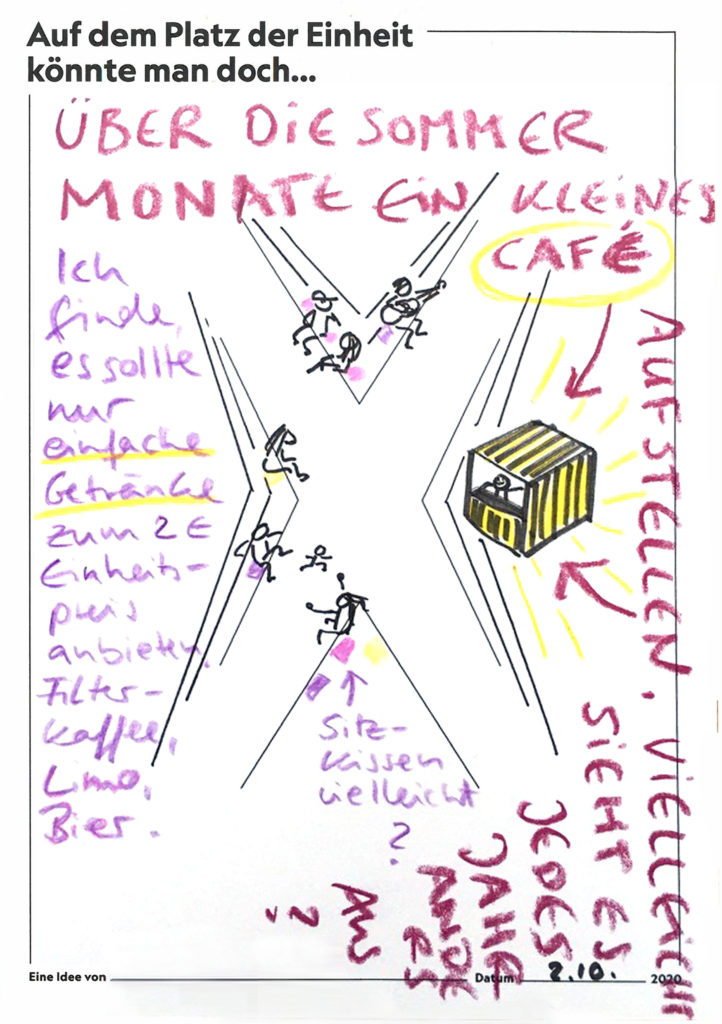 Auf dem Platz der Einheit
könnte man doch...
ÜBER DIE SOMMER
MONATE EIN KLEINES
CAFÉ
AUFSTELLEN. VIELLEICHT
SIEHT ES
JEDES
JAHR
ANDE
ES
AUS
?
Ich
finde,
es sollte
nur
einfache
Getränke
zum 2€
Einheits-
preis
anbieten.
Filter-
kaffee,
Limo,
Bier.
Sitz-
kissen
vielleicht
?
Eine Idee von
Datum 2.10. 2020